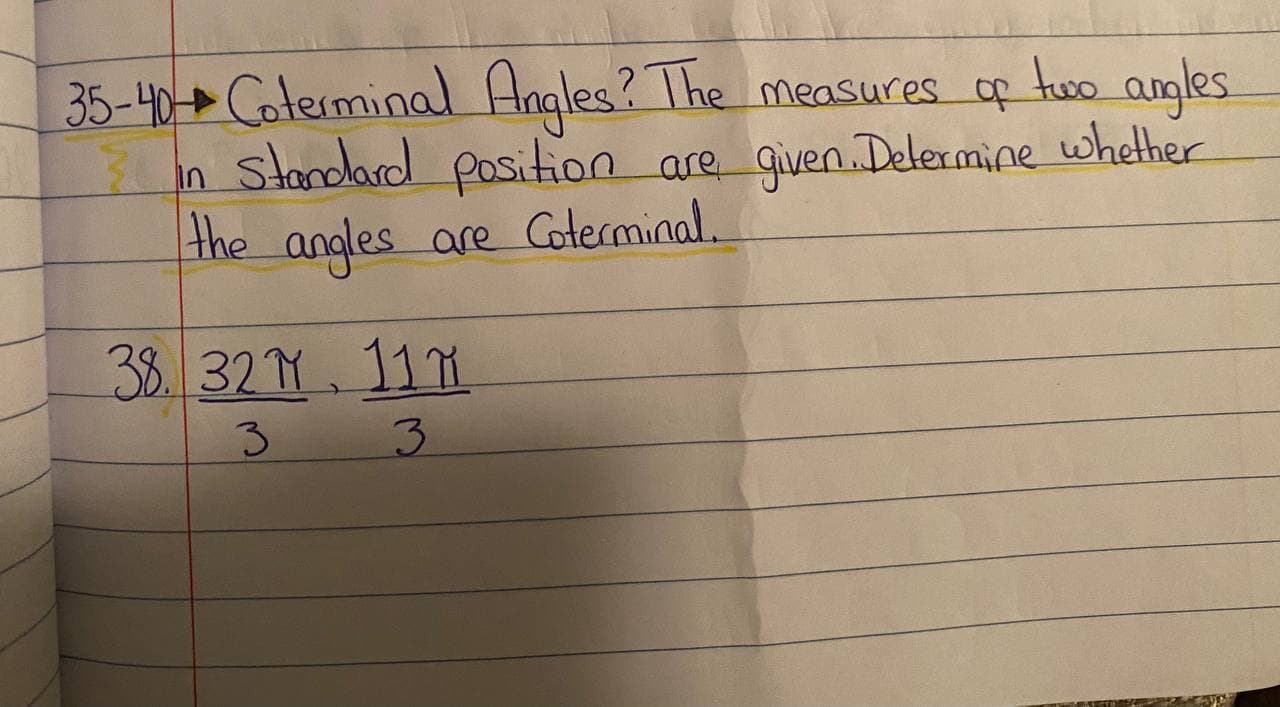 35-40→ Coterminal Angles? The measures of two angles
in Standard position are given. Determine whether
the angles are Coterminal.
38. 32π/3, 11π/3